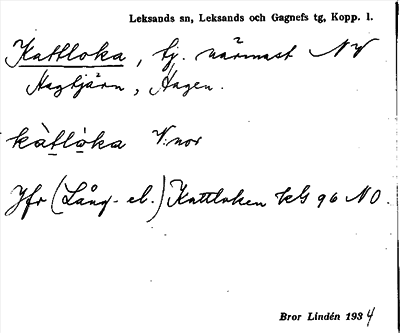 Leksands sn, Leksands och Gagnefs tg, Kopp. l.
Kattloka, tj. närmast NV
Hagtjärn, Hagen.
kàtlòka V:nor
Jfr (Lång- el.) Kattloken kG 96 NO.
Bror Lindén 1934